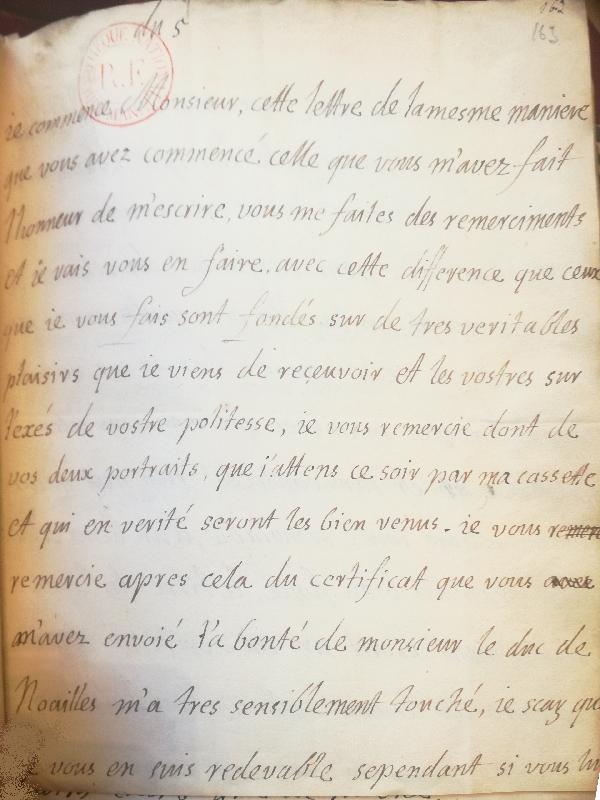 du 5
162
163
BIBLIOTHEQUE NATIONALE
R.F.
ie commence Monsieur, cette lettre de lamesme maniere
que vous avez commencé celle que vous m'avez fait
l'honneur de m'escrire, vous me faites des remerciments
et ie vais vous en faire, avec cette difference que ceux
que ie vous fais sont fondés sur de tres veritables
plaisirs que ie viens de reçeuvoir et les vostres sur
l'exés de vostre politesse, ie vous remercie dont de
vos deux portraits, que i'attens ce soir par ma cassette
et qui en verité seront les bien venus. ie vous
remercie apres cela du certificat que vous
m'avez envoié la bonté de monsieur le duc de
Noailles m'a tres sensiblement touché, ie scay que
vous en suis redevable sependant si vous lui